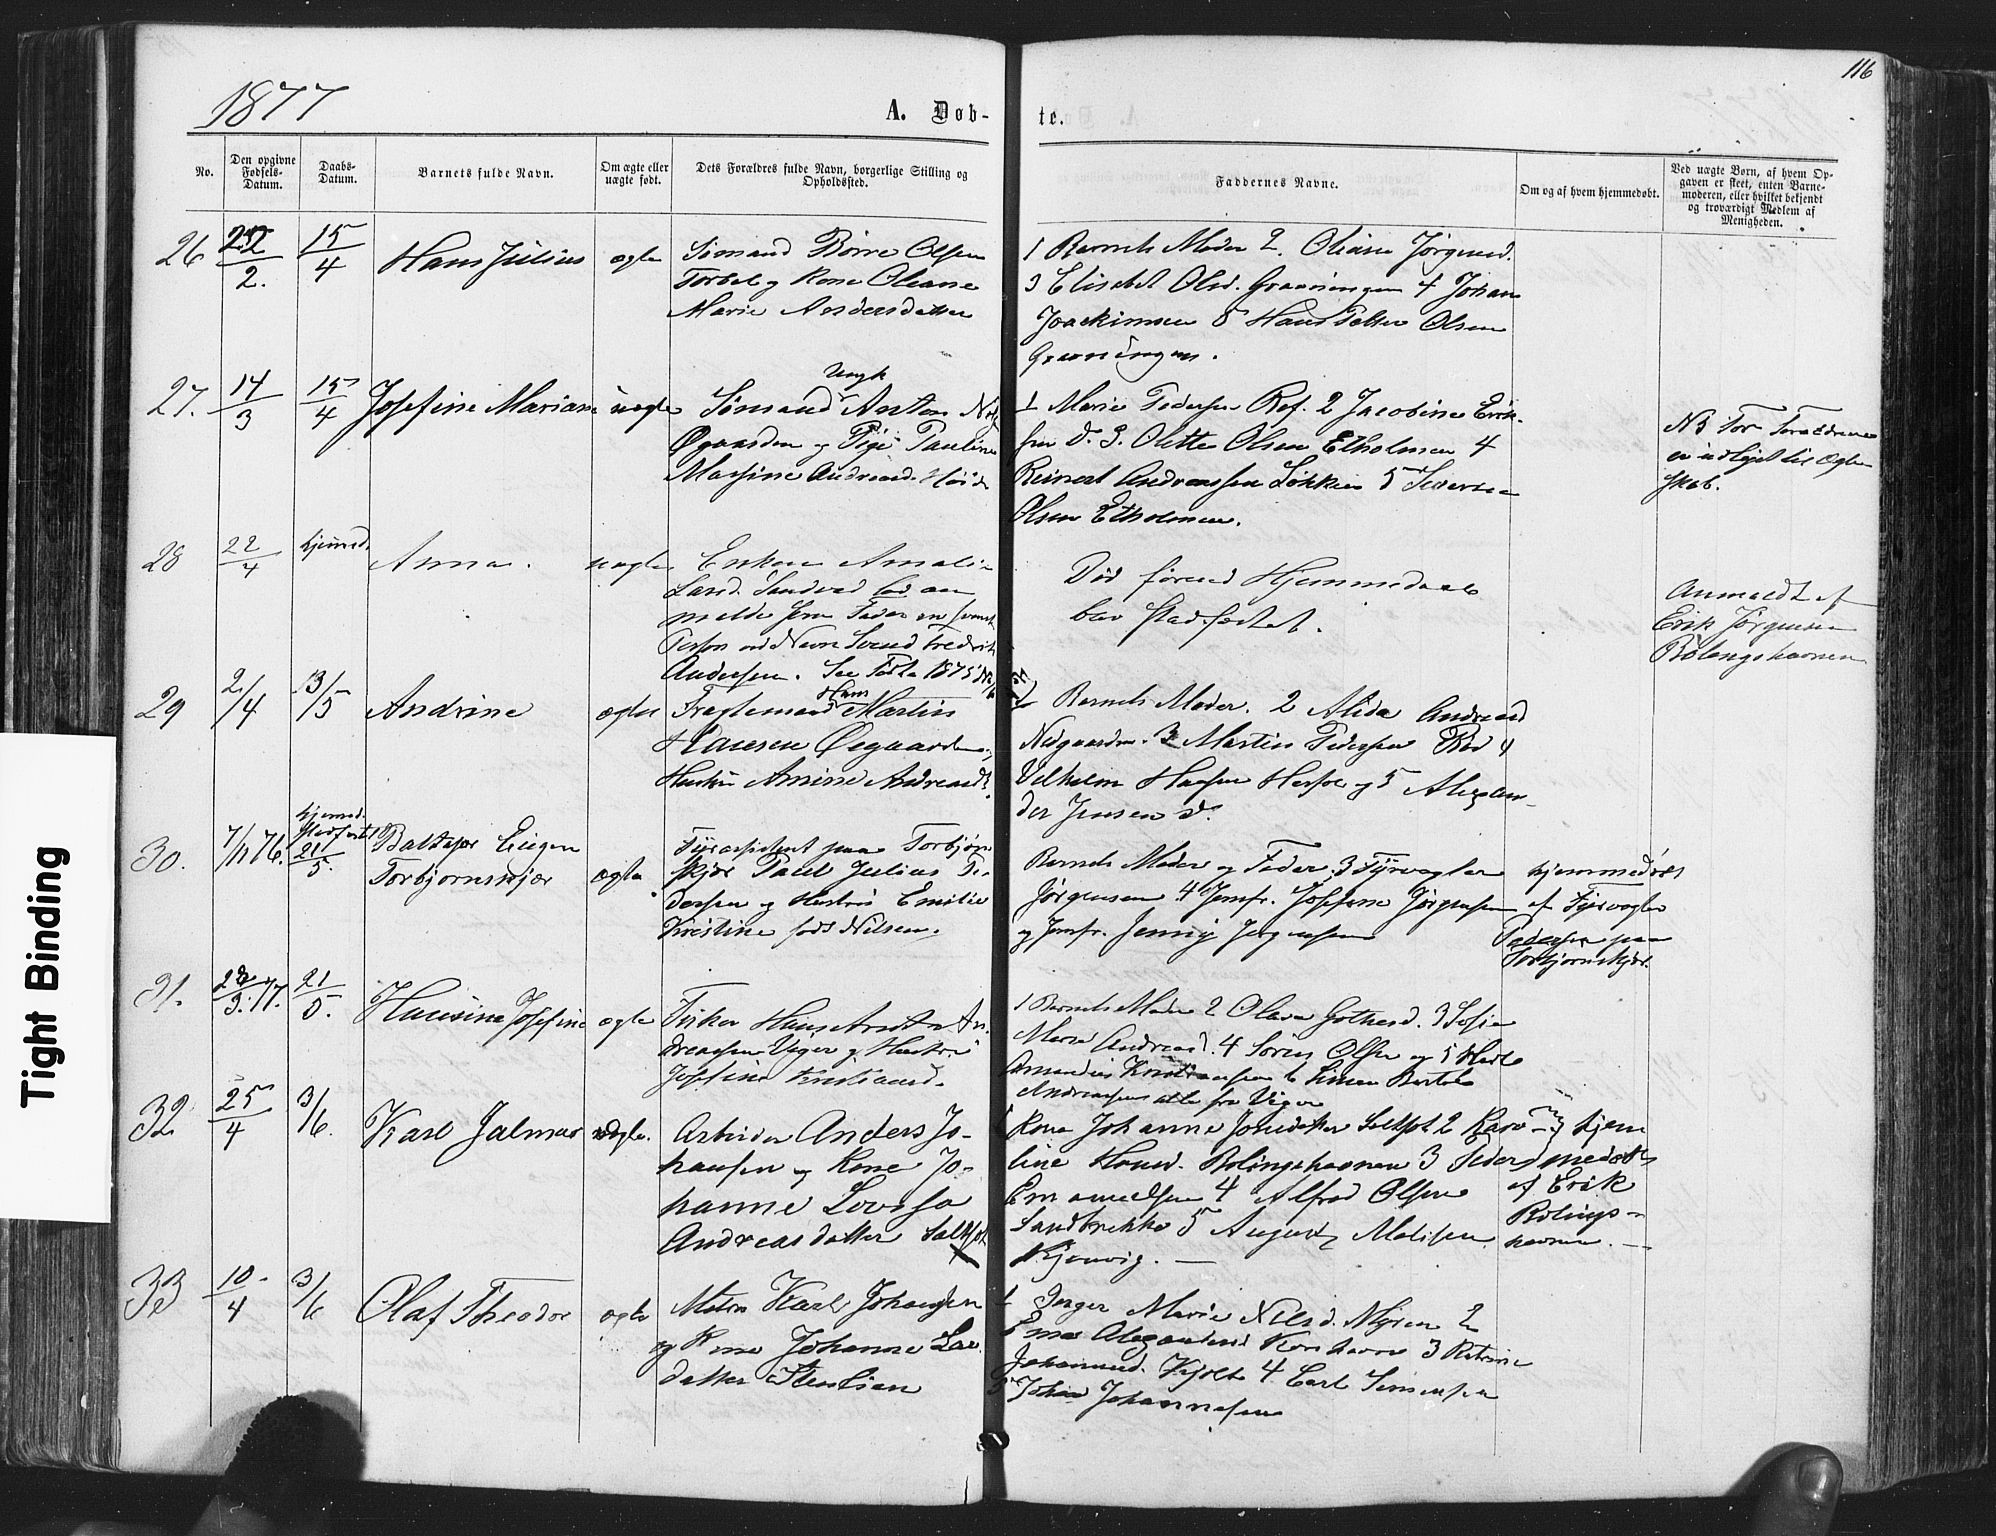 116
1877
A. Døb-
te.
No.
Den opgivne Fødsels-Datum.
Daabs-Datum.
Barnets fulde Navn.
Om ægte eller uægte født.
Dets Forældres fulde Navn, borgerlige Stilling og Opholdssted.
Faddernes Navne.
Om og af hvem hjemmedøbt.
Ved uægte Børn, af hvem Op-
gaven er skeet, enten Barne-
moderen, eller hvilket bekjendt
og troværdigt Medlem af
Menigheden.
26
2.
15/4
Hans Julius
ægte
Sømand Børre Olsen
og Kone Oleane
Marie Andersdatter
1 Barnets Moder 2. Oleane Jørgensd.
3 Elisabet Olsd. Gravningen 4 Johan
Joackimsen 5 Hans Olsen
Gravningen.
27.
14/3
15/4
Josefine Mariane
uægte
Ungk
Sømand Anton
Øgaarden og Pige Pauline
Marsine Andreasd.
1 Marie Pedersen Rød. 2 Jacobine Erik-
sen D. 3. Olette Olsen Etholmen 4
Reinert Andreassen Løkken 5
Olsen Etholmen.
NB For Forældrene
er udlyst til Ægte-
skab.
28
22/4
hjemmed.
Anna.
uægte
Enken Amalie
Larsd. Sandvad lod an
melde som Fader en svensk
Person ved Navn Svend Fredrik
Andersen. See 1875
Død førend Hjemmedaab
blev stadfæstet.
Anmeldt af
Erik Jørgensen
Rølingshavnen
29
2/4
13/5
Andrine
ægte
Hans
Fragtemand Martin
Hansen Øegaarden,
Hustru Anine Andreasd.
1 Barnets Moder. 2 Alida Andreasd
Nedgaarden. 3 Martin Pedersen Rød 4
Vilhelm Hansen Herføl og 5 Alexan-
der Jensen d.
30.
7/11 76.
hjemmed.
stadfæstet
21/5.
Baltazar Eugen
Torbjørnskjær
ægte
Fyrassistent paa Torbjørn
skjær Paul Julius Pe-
dersen og Hustru Emilie
Kristine født Nilsen.
Barnets Moder og Fader. 3 Fyrvogter
Jørgensen 4 Jomfr. Josefine Jørgensen
og Jomfr. Jenny Jørgensen
hjemmedøbt
af Fyrvogter
Pedersen paa
Torbjørnskjær.
31.
3. 77.
21/5.
Hansine Josefine
ægte
Fisker Hans Anton An-
dreassen Viger og Hustru
Josefine Kristiansd.
1 Barnets Moder 2 Olava Gothersd. 3 Sofie
Marie Andreasd. 4 Søren Olsen og 5
Amandus Kristiansen 6 Simen Bertel
Andreassen alle fra Viger
32
25/4
3/6.
Karl Jalmar
ægte.
Arbeider Anders Jo-
hansen og Kone Jo-
hanne Lovisa
Andreasdatter Saltpt
1 Kone Johanne Jonsdatter Saltpt 2 Karo-
line Hansd. Rølingshavnen 3 Peder
Emanuelsen 4 Alfred Olsen
Sandbrekke 5 August Matisen
Kjenvig.
hjem
medøbt
af Erik
Rølings-
havnen.
33
10/4
3/6
Olaf Theodor
ægte
Matr. Karl Johansen
og Kone Johanne Lars
datter Stenlien
1 Inger Marie Nilsd. Myren 2
Emma Alexandersd Korshavn 3 Katrine
Johannesd. 4 Carl Simensen
5 Johan Johannesen
Tight Binding